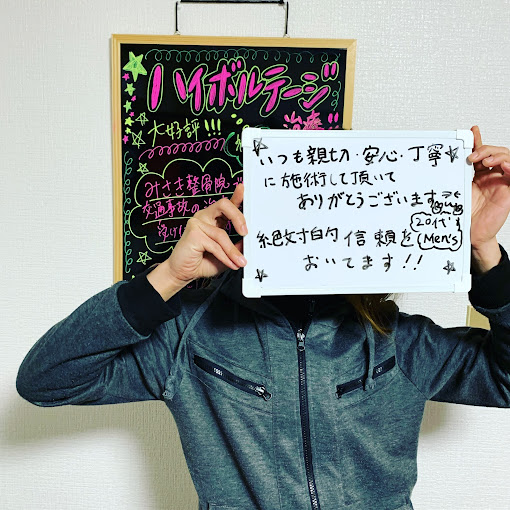 ハイボルテージ
治療
大好評!!!
みさき整骨院
交通事故の
受け
いつも親切・安心・丁寧
に施術して頂いて
ありがとうございます
絶対的信頼を
20代
Men's
おいてます!!